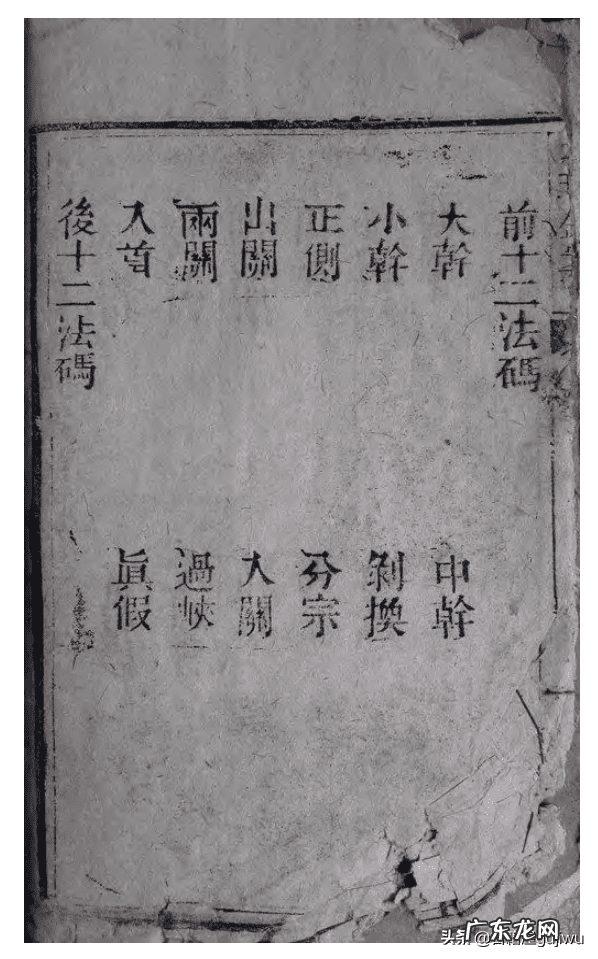 前十二法碼
大幹 中幹
小幹 剝換
正側 分宗
出關 入關
兩關 過峽
入首 眞假
後十二法碼
广东龙网
头条